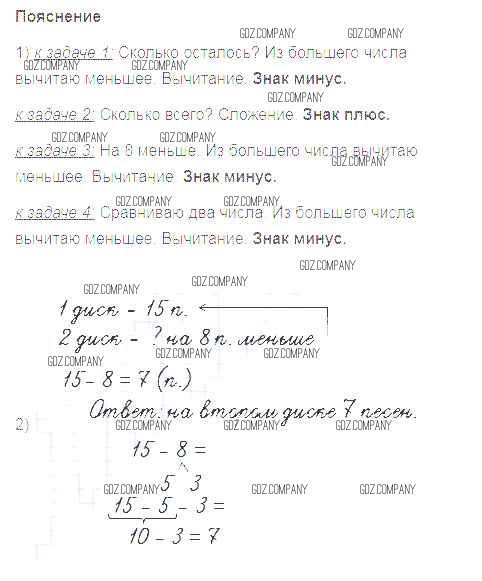 Пояснение
GDZ.COMPANY GDZ.COMPANY
1) к задаче 1: Сколько осталось? Из большего числа
GDZ.COMPANY GDZ.COMPANY
вычитаю меньшее. Вычитание. Знак минус.
GDZ.COMPANY
к задаче 2: Сколько всего? Сложение. Знак плюс.
GDZ.COMPANY GDZ.COMPANY
к задаче 3: На 8 меньше. Из большего числа вычитаю
GDZ.COMPANY
меньшее. Вычитание. Знак минус.
GDZ.COMPANY GDZ.COMPANY
к задаче 4: Сравниваю два числа. Из большего числа
вычитаю меньшее. Вычитание. Знак минус.
GDZ.COMPANY
GDZ.COMPANY GDZ.COMPANY
1 диск - 15 п.
2 диск - ? на 8 п. меньше
GDZ.COMPANY GDZ.COMPANY GDZ.COMPANY
15 - 8 = 7 (п.)
Ответ: на втором диске 7 песен.
2) GDZ.COMPANY GDZ.COMPANY GDZ.COMPANY
15 - 8 =
5 3
GDZ.COMPANY GDZ.COMPANY GDZ.COMPANY
15 - 5 - 3 =
10 - 3 = 7